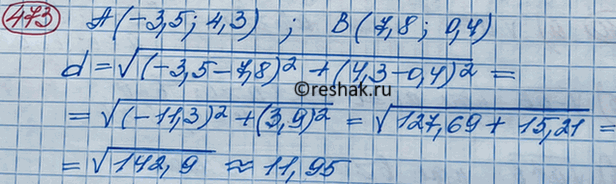 473 A(-3,5; 4,3) ; B(7,8; 0,4)
d = √((-3,5-7,8)² + (4,3-0,4)²) =
©reshak.ru
= √((-11,3)² + (3,9)²) = √(127,69 + 15,21) =
= √(142,9) ≈ 11,95